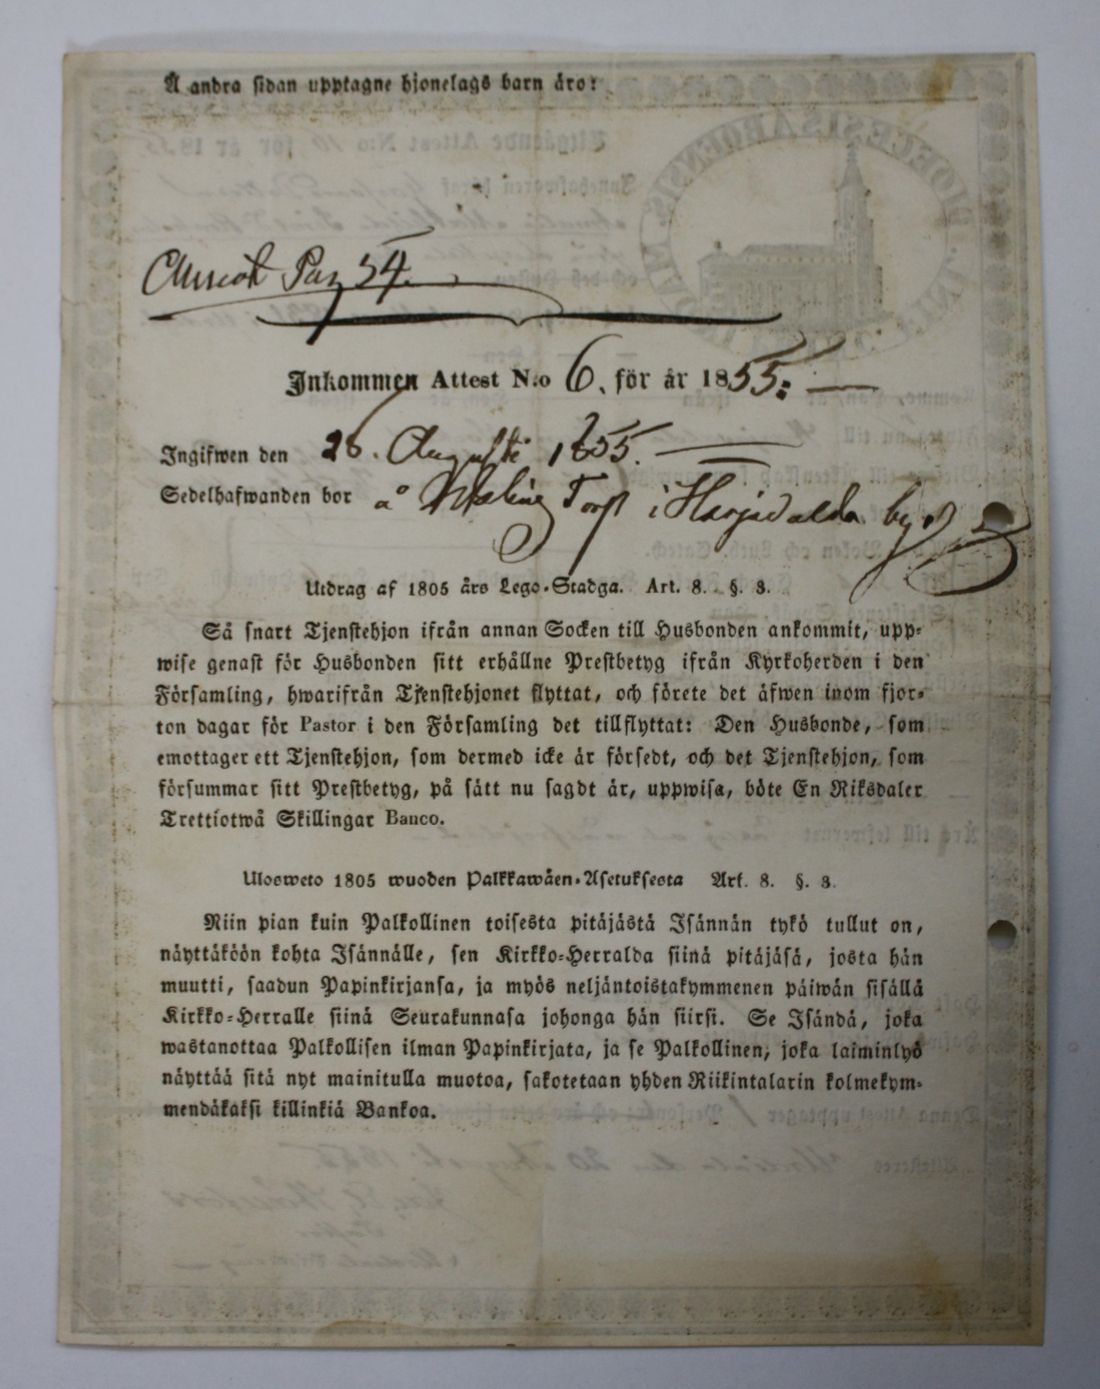 Å andra sidan upptagne hjonelags barn äro:
Pag 54.
Inkommen Attest N:o 6. för år 1855:
Ingifwen den 28. Augusti 1855.
Sedelhafwanden bor å Torp i by
Utdrag af 1805 års Lego-Stadga. Art. 8. §. 3.
Så snart Tjenstehjon ifrån annan Socken till Husbonden ankommit, upp-
wise genast för Husbonden sitt erhållne Prestbetyg ifrån Kyrkoherden i den
Församling, hwarifrån Tjenstehjonet flyttat, och förete det äfwen inom fjor-
ton dagar för Pastor i den Församling det tillflyttat: Den Husbonde, som
emottager ett Tjenstehjon, som dermed icke är försedt, och det Tjenstehjon, som
försummar sitt Prestbetyg, på sätt nu sagdt är, uppwisa, böte En Riksdaler
Trettiotwå Skillingar Banco.
Ulosweto 1805 wuoden Palkkawäen-Asetuksesta Art. 8. §. 3.
Niin pian kuin Palkollinen toisesta pitäjästä Isännän tykö tullut on,
näyttäköön kohta Isännälle, sen Kirkko-Herralda siinä pitäjäsä, josta hän
muutti, saadun Papinkirjansa, ja myös neljäntoistakymmenen päiwän sisällä
Kirkko-Herralle siinä Seurakunnasa johonga hän siirsi. Se Isändä, joka
wastanottaa Palkollisen ilman Papinkirjata, ja se Palkollinen, joka laiminlyö
näyttää sitä nyt mainitulla muotoa, sakotetaan yhden Riikintalarin kolmekym-
mendäkaksi killinkiä Bankoa.